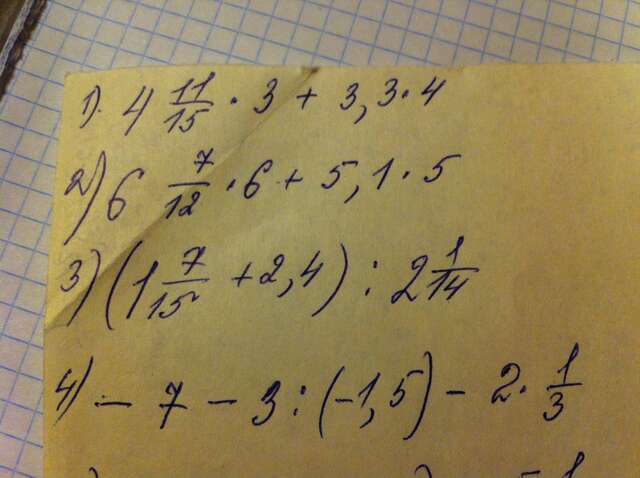 1). 4 11/15 · 3 + 3,3 · 4
2) 6 7/12 · 6 + 5,1 · 5
3) (1 7/15 + 2,4) : 2 1/14
4) - 7 - 3 : (-1,5) - 2 · 1/3